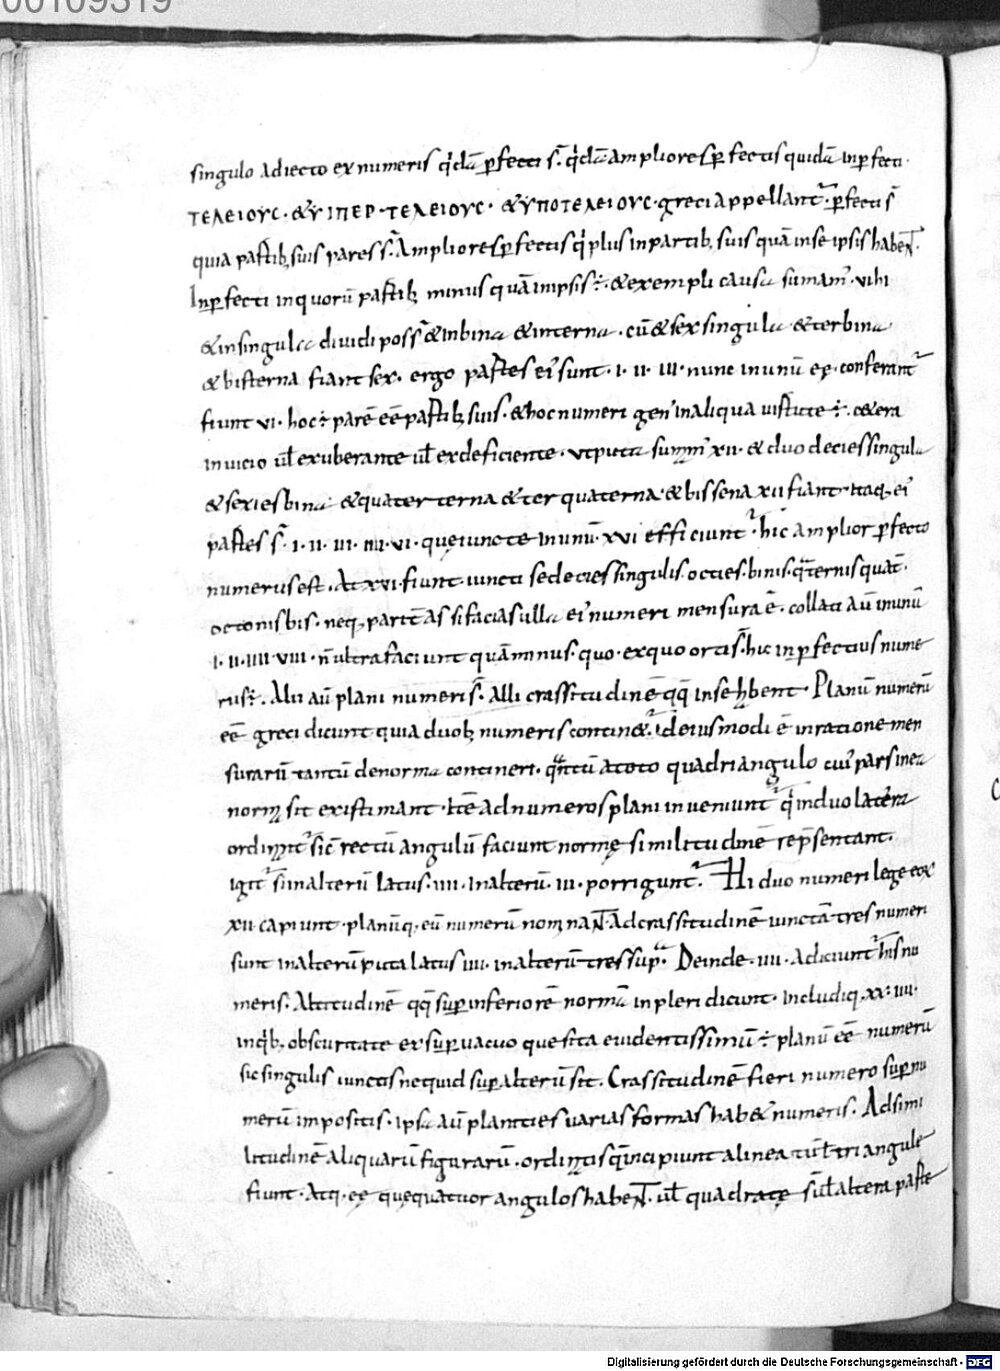 00109319
singulo adiecto ex numeris q̇dā ꝑfecti s̄ q̇dā ampliores ꝑfectis quidā inꝑfecti·
ΤΕΛΕΙΟΥC· & ΥΙΠΕΡ·ΤΕΛΕΙΟΥC· & ΥΠΟΤΕΛΕΙΟΥC· greci appellant̃· ꝑfecti s̄
quia partib; suis pares s̄· Ampliores ꝑfectis q̇ plus in partib; suis quā in se ipsis habeN̄T·
Inꝑfecti in quorū partib; minus quā in ipsis ÷· & exempli causa sumam᾽· vi hi
& in singula diuidi poss̄ & in bina & in terna· cū & sex singula & ter bina
& bis terna fiant sex· ergo partes ei᾽ sunt· I· II· III· nunc in unū eę· conferant̃
fiunt VI· hoc ÷ parē eē partib; suis· & hoc numeri gen᾽ in aliqua uirtute ÷· c&era
in uicio uł exuberante uł ex deficiente· ut puta sumam᾽ XII· & duodecies singula
& sexies bina & quater terna & ter quaterna· & bis sena XII fiant· Itaq; ei᾽
partes s̄· I· II· III· IIII· VI· quę iuncte in unū· XVI efficiunt̃· hic amplior ꝑfecto
numerus est· At XVI· fiunt iuncti sedecies singulis· octies· binis· q̄ternis quat̄·
octonis bis· neq; partē as si facias ulla ei᾽ numeri mensura ē· collati aū in unū
I· II· IIII· VIII· n̄ ultra faciunt quā minus· quo· ex quo ortis̄· hic inꝑfectius nume
rus ÷· Alii aū plani numeri s̄· Alii crassitudinē qq̇ in se hb̄ent· Planū numerū
eē greci dicunt quia duob; numeris contin&̃· id eiusmodi ē in ratione men
surarū tantū de norma contineri· qͣntū a toto quadriangulo cui᾽ pars inea
normę sit existimant· Itē ad numeros plani inueniunt̃ q̇ in duo latera
ordinant̃ sic rectū angulū faciunt normę similitudinē rep̄sentant·
igit̃ s̄i in alterū latus· IIII· in alterū· III· porrigunt̃· Hi duo numeri lege eox
XII capiunt· planūq; eū numerū nominaN̄T· Ad crassitudinē iuncta tres numeri
sunt in alterū puta latus IIII· in alterū tres supͣ· Deinde· IIII· adiciunt̃ his nu
meris· Altitudinē qq̇ suꝑ inferiorē normā inpleri dicunt· includiq; XX· IIII·
in q̇b; obscuritate ex suꝑuacuo quesita euidentissimū ÷ planū eē numerū
sic singulis iunctis ne quid suꝑ alterū sit· Crassitudinē fieri numero suꝑ nu
merū impositis· ipsa aū planities uarias formas hab& numeris· Ad simi
litudinē aliquarū figurarū· ordinatis q̄ incipiunt a linea tū triangule
fiunt· Atq; eę quę quatuor angulos habeN̄T· uł quadratę s̄ uł altera parte
Digitalisierung gefördert durch die Deutsche Forschungsgemeinschaft - DFG